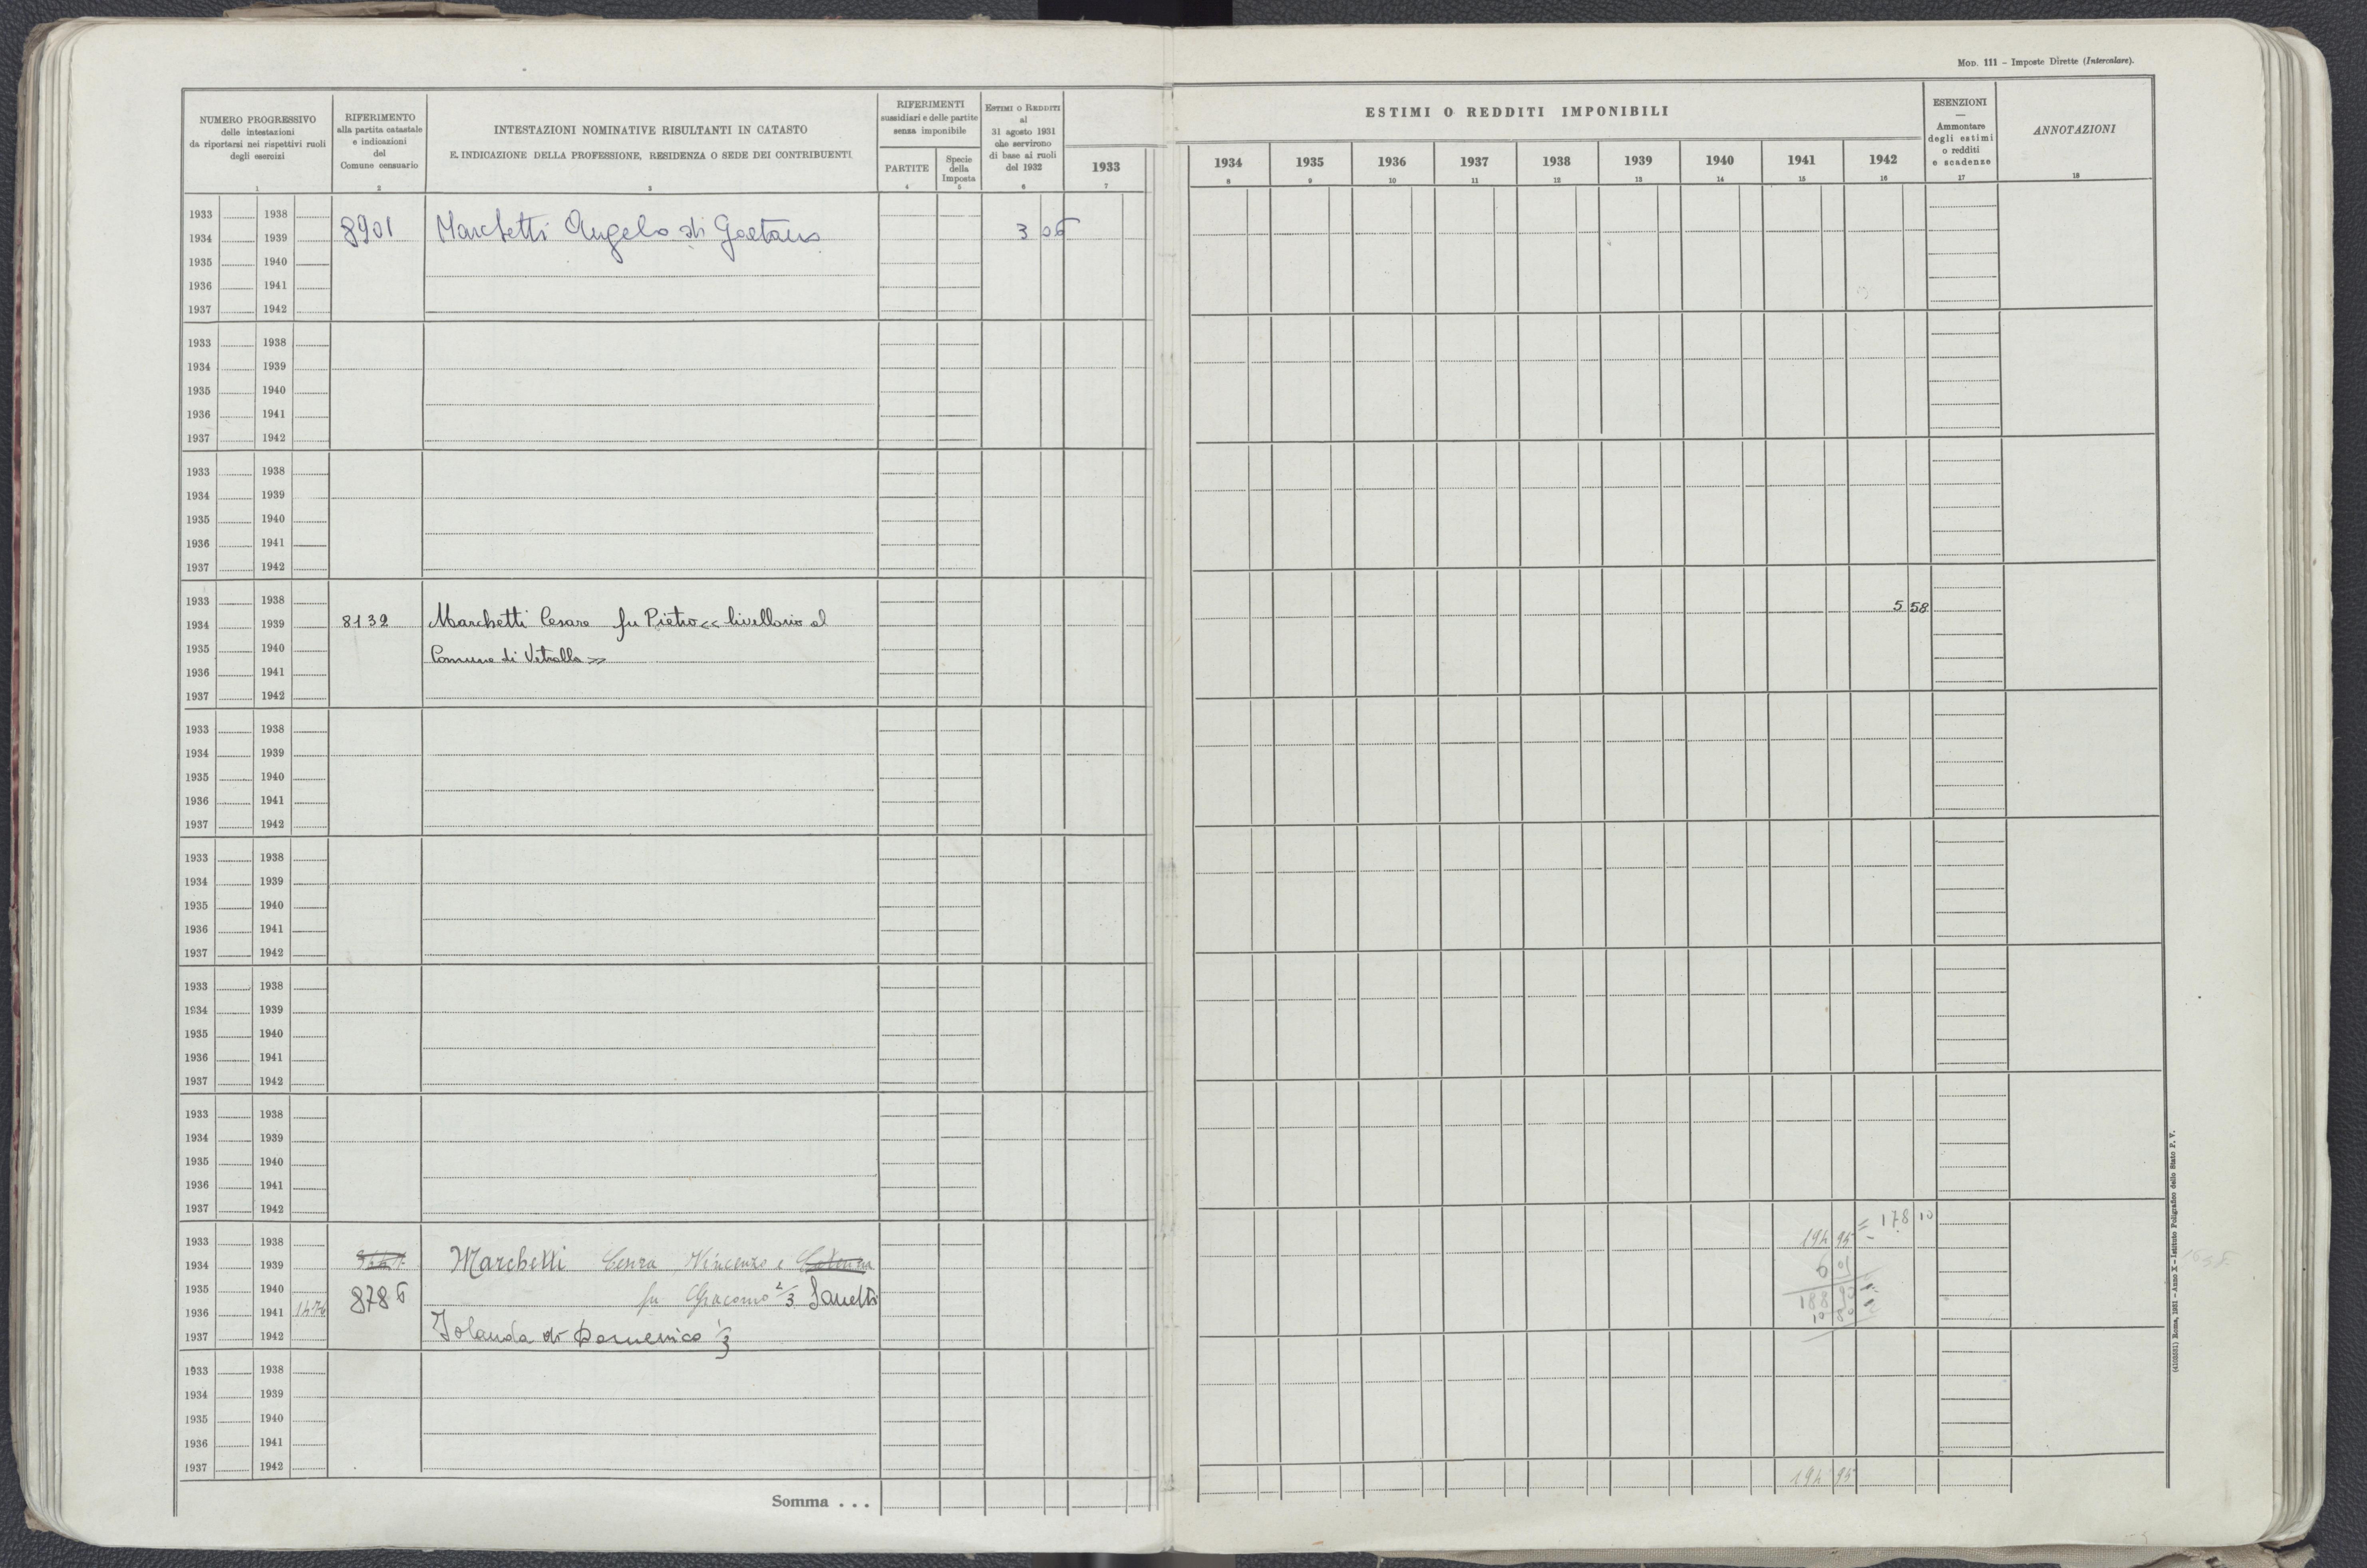 Mod. 111 - Imposte Dirette (Intercalare).
NUMERO PROGRESSIVO
delle intestazioni
da riportarsi nei rispettivi ruoli
degli esercizi
1
RIFERIMENTO
alla partita catastale
e indicazioni
del
Comune censuario
2
INTESTAZIONI NOMINATIVE RISULTANTI IN CATASTO
E INDICAZIONE DELLA PROFESSIONE, RESIDENZA O SEDE DEI CONTRIBUENTI
3
RIFERIMENTI
sussidiari e delle partite
senza imponibile
PARTITE
4
Specie
della
Imposta
5
Estimi o Redditi
al
31 agosto 1931
che servirono
di base ai ruoli
del 1932
6
ESTIMI O REDDITI IMPONIBILI
1933 1934 1935 1936 1937 1938 1939 1940 1941 1942
7 8 9 10 11 12 13 14 15 16
ESENZIONI
—
Ammontare
degli estimi
o redditi
e scadenze
17
ANNOTAZIONI
18
1933 1938
1934 1939 8901 Marchetti Angelo di Gaetano 3 06
1935 1940
1936 1941
1937 1942
1933 1938
1934 1939
1935 1940
1936 1941
1937 1942
1933 1938
1934 1939
1935 1940
1936 1941
1937 1942
1933 1938
1934 1939 8132 Marchetti Cesare fu Pietro << livellario al 5 58
1935 1940 Comune di Vetralla >>
1936 1941
1937 1942
1933 1938
1934 1939
1935 1940
1936 1941
1937 1942
1933 1938
1934 1939
1935 1940
1936 1941
1937 1942
1933 1938
1934 1939
1935 1940
1936 1941
1937 1942
1933 1938
1934 1939
1935 1940
1936 1941
1937 1942
1933 1938 194 95 = 178 10
1934 1939 Marchetti Vincenzo e 6 05
1935 1940 8786 fu Giacomo 2/3 188 90
1936 1941 1474 10 80
1937 1942 Iolanda di Domenico 1/3
1933 1938
1934 1939
1935 1940
1936 1941
1937 1942
Somma . . . 194 95
(4103531) Roma, 1931 - Anno X - Istituto Poligrafico dello Stato P. V.